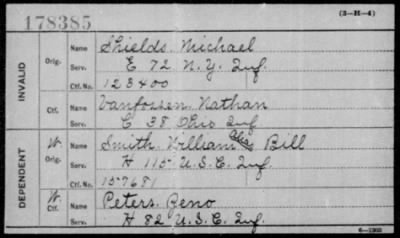 178385
(3-H-4)
INVALID
Orig. Name Shields. Michael
Serv. E 72 N.Y. Inf.
Ctf. No. 123400
Ctf. Name Vanfossen. Nathan
Serv. C 38 Ohio Inf
DEPENDENT
W. Orig. Name Smith. William Alias Bill
Serv. H 115 U.S.C. Inf.
Ctf. No. 157681
W. Ctf. Name Peters. Reno
Serv. H 82 U.S.C. Inf.